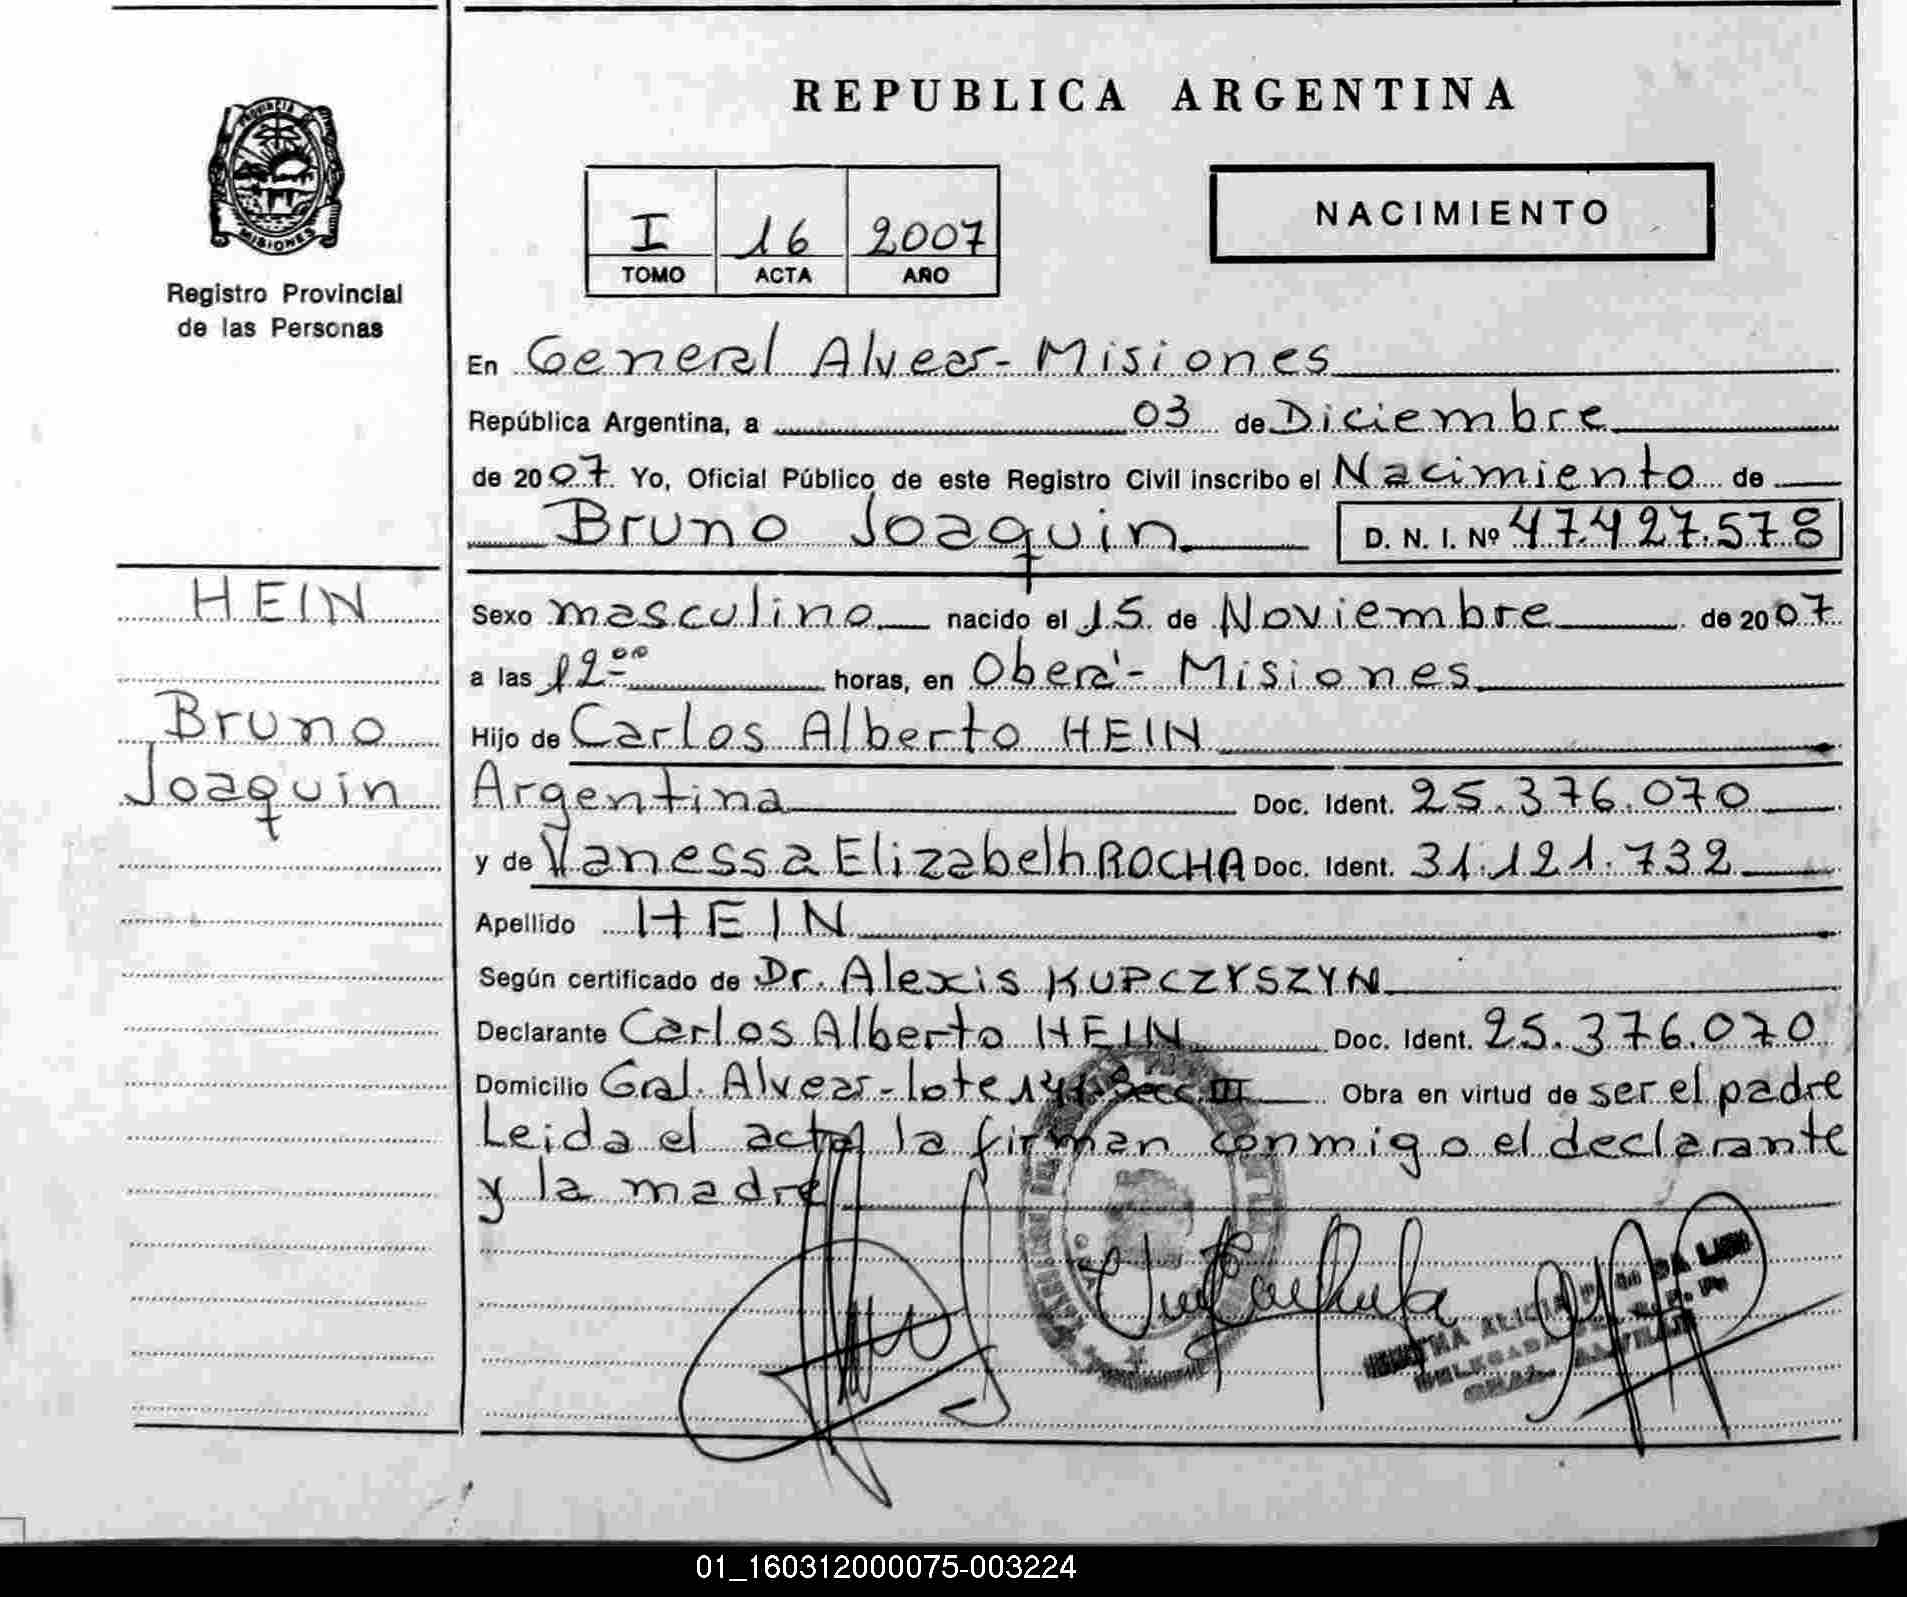 REPUBLICA ARGENTINA
PROVINCIA DE
MISIONES
Registro Provincial
de las Personas
I 16 2007
TOMO ACTA AÑO
NACIMIENTO
En General Alvear - Misiones
República Argentina, a 03 de Diciembre
de 2007 Yo, Oficial Público de este Registro Civil inscribo el Nacimiento de
Bruno Joaquin D. N. I. Nº 47.427.578
HEIN
Bruno
Joaquin
Sexo masculino nacido el 15 de Noviembre de 2007
a las 12 00 horas, en Oberá - Misiones
Hijo de Carlos Alberto HEIN
Argentina Doc. Ident. 25.376.070
y de Vanessa Elizabelh ROCHA Doc. Ident. 31.121.732
Apellido HEIN
Según certificado de Dr. Alexis KUPCZYSZYN
Declarante Carlos Alberto HEIN Doc. Ident. 25.376.070
Domicilio Gral. Alvear - lote 141 Secc. III Obra en virtud de ser el padre
Leida el acta la firman conmigo el declarante
y la madre
ALICIA DA
DELEGADA
GRAL.
01_160312000075-003224